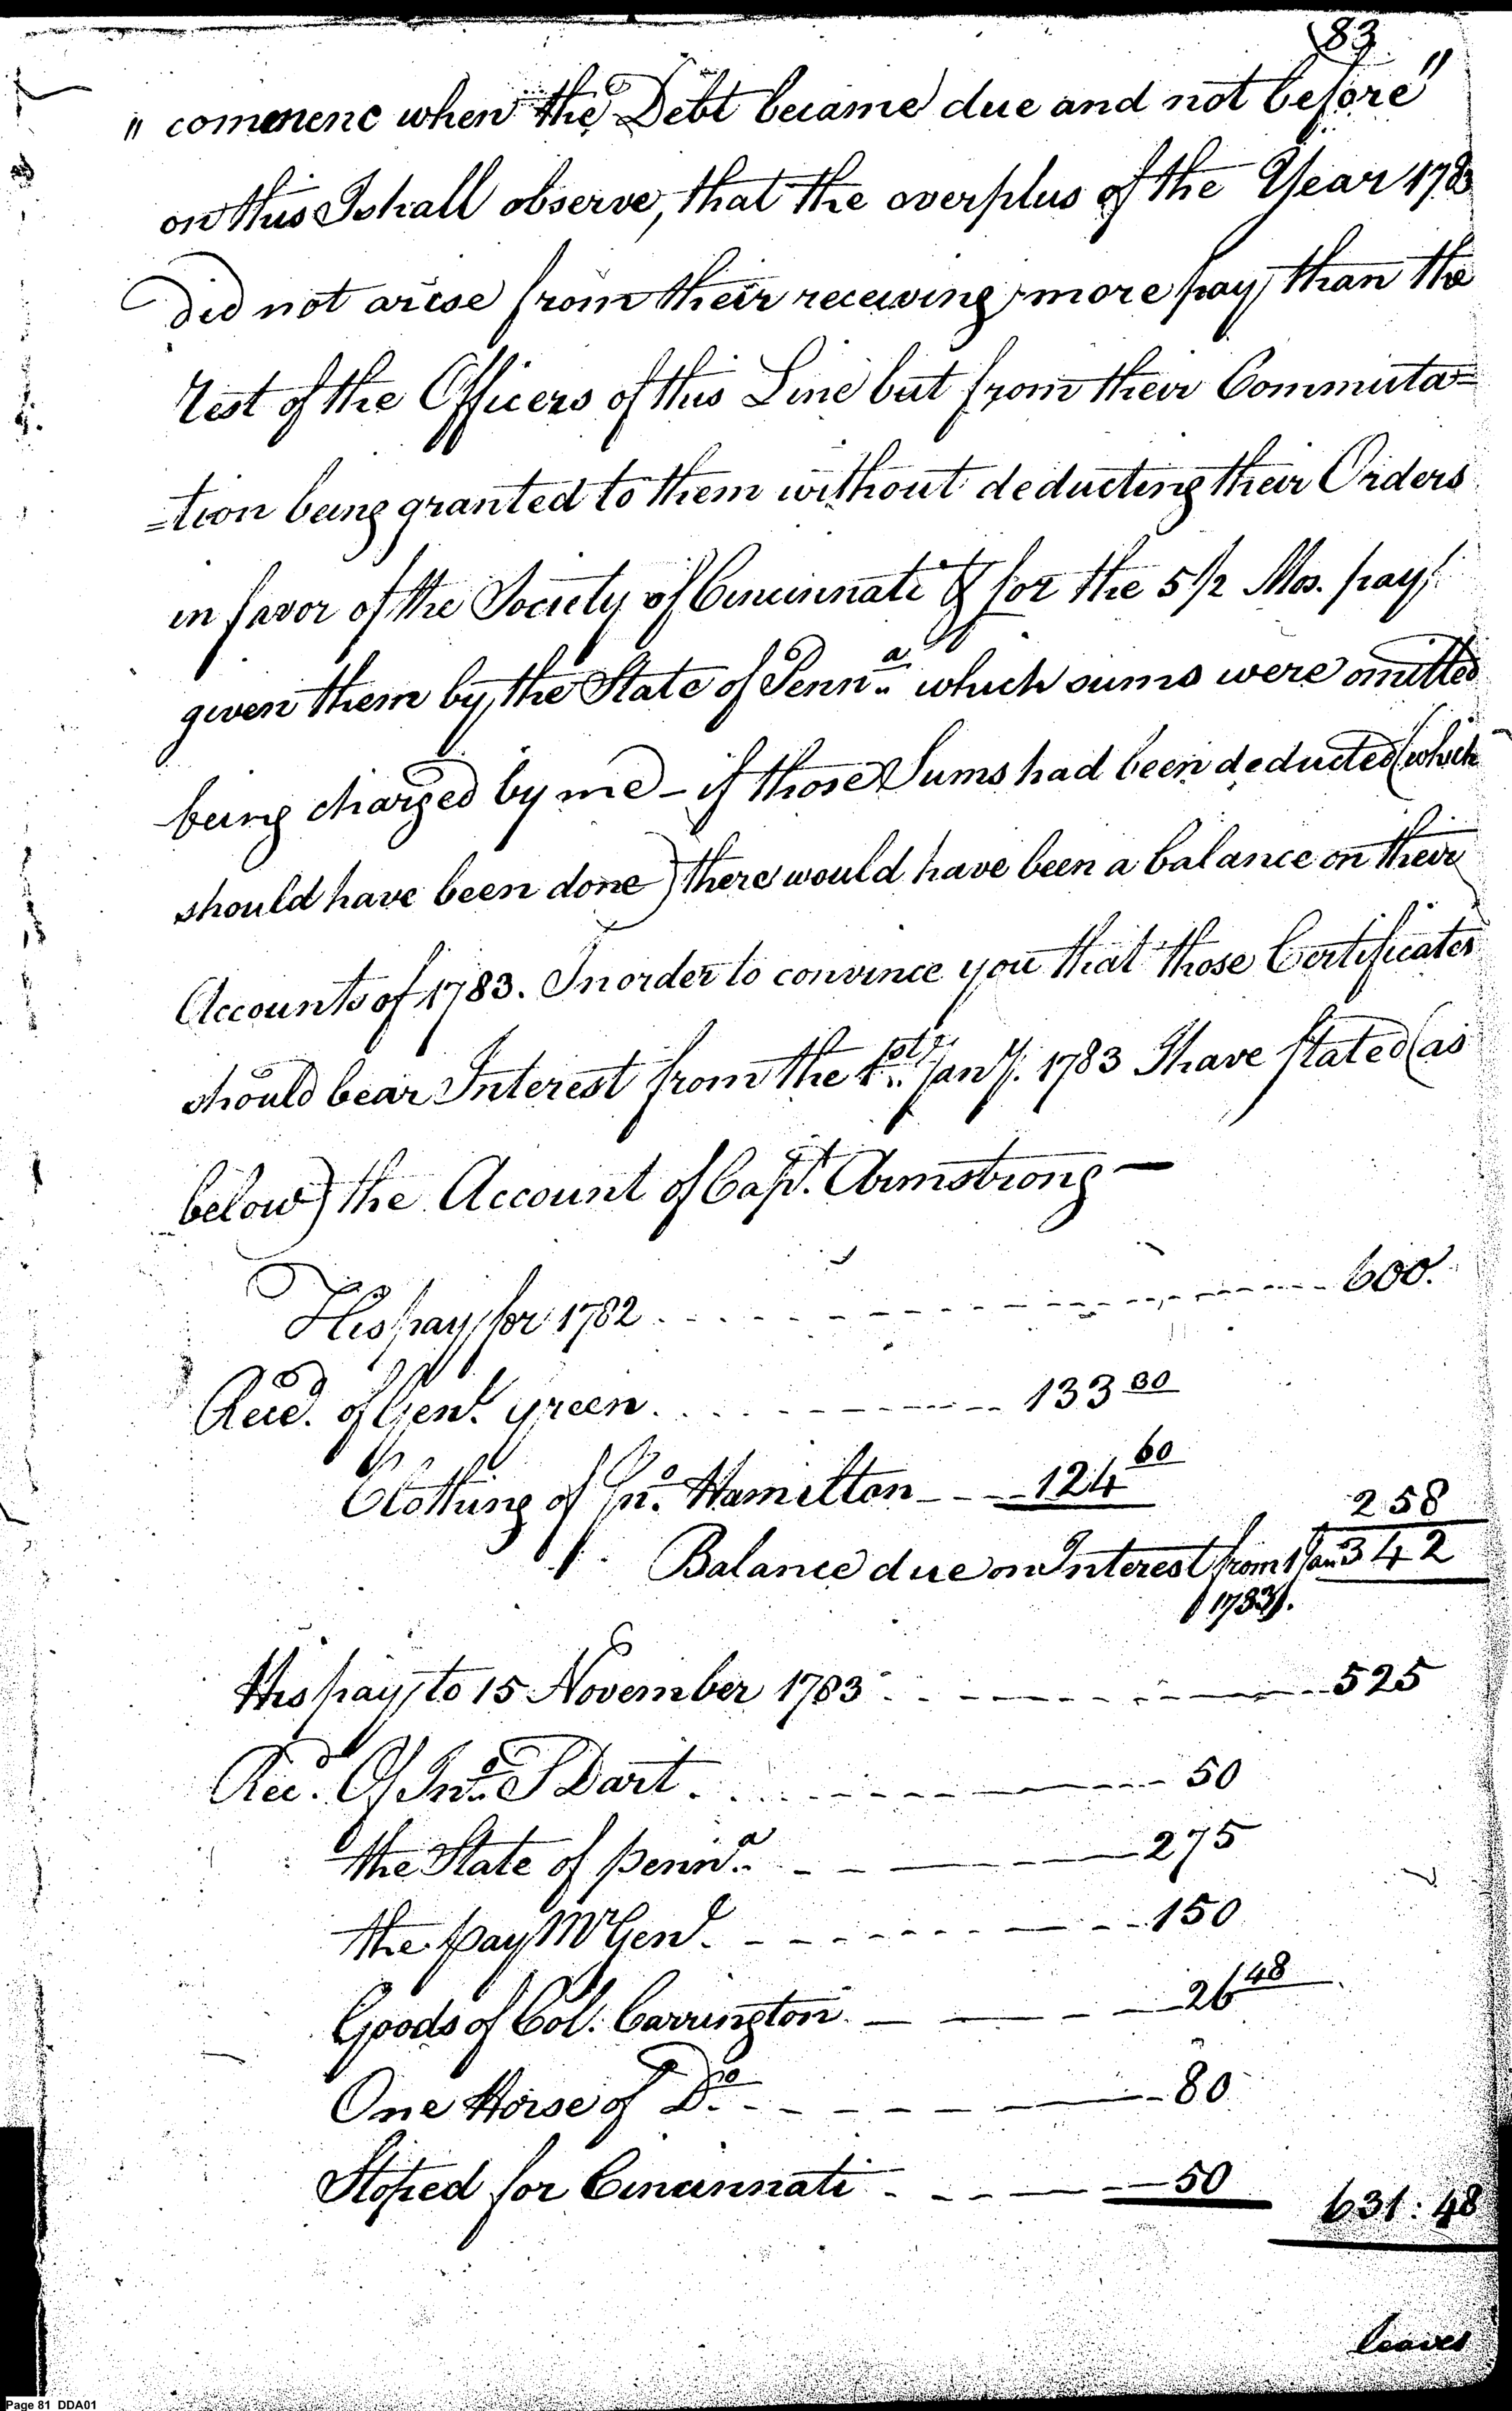 83
" commenc when the Debt became due and not before"
on this I shall observe, that the overplus of the Year 1783
did not arise from their receiving more pay than the
rest of the Officers of this Line but from their Commuta=
=tion being granted to them without deducting their Orders
in favor of the Society of Cincinnati & for the 5 1/2 Mos. pay
given them by the State of Penn.a which sums were omitted
being charged by me - if those Sums had been deducted (which
should have been done) there would have been a balance on their
Accounts of 1783. In order to convince you that those Certificates
should bear Interest from the 1st Jany. 1783 I have stated (as
below) the Account of Capt. Armstrong —
His pay for 1782 600.
Recd. of Genl. Green 133 30
Clothing of Jno. Hamilton 124 60
258
Balance due on Interest from 1 Jan 342
1783.
His pay to 15 November 1783 525
Recd. Of Jno. S Dart 50
the State of Penna. 275
the pay Mr Genl. 150
Goods of Col. Carrington 26 48
One Horse of Do. 80
Stoped for Cincinnati 50
631:48
leaves
Page 81 DDA01